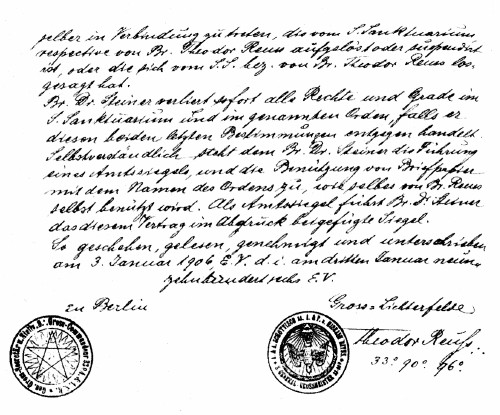 selber in Verbindung zu treten, die vom S. Sanktuarium
respective von Br. Theodor Reuss aufgelöst oder suspendirt
ist, oder die sich vom S.S. bez. von Br. Theodor Reuss los-
gesagt hat.
Br. Dr. Steiner verliert sofort alle Rechte und Grade im
S. Sanktuarium und im genannten Orden, falls er
diesen beiden letzten Bestimmungen entgegen handelt.
Selbstverständlich steht dem Br. Dr. Steiner die Führung
eines Amtssiegels, und die Benützung von Briefpapier
mit dem Namen des Ordens zu, wie selbes von Br. Reuss
selbst benützt wird. Als Amtssiegel führt Br. Dr. Steiner
das diesem Vertrag im Abdruck beigefügte Siegel.
So geschehen, gelesen, genehmigt und unterschrieben
am 3. Januar 1906 E.V. d. i. am dritten Januar neun-
zehnhundertsechs E.V.
zu Berlin
Gross-Lichterfelde
Theodor Reuss.
33° 90° 96°